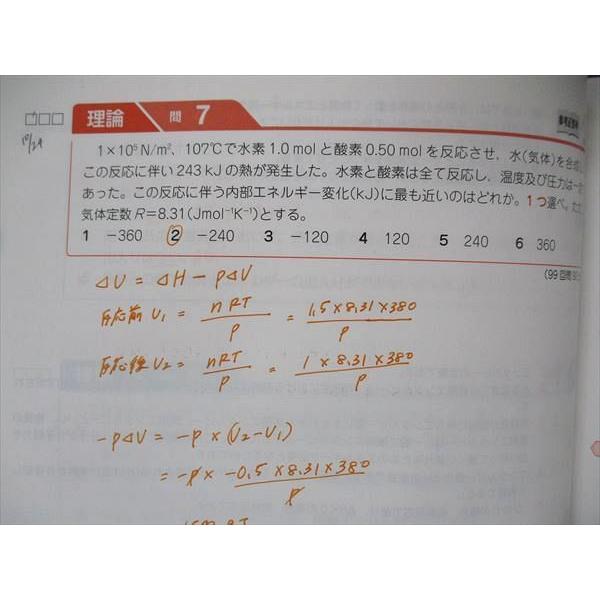 理論 問 7
10/29
1×10⁵N/m²、107℃で水素1.0molと酸素0.50molを反応させ、水(気体)を合成
この反応に伴い243kJの熱が発生した。水素と酸素は全て反応し、温度及び圧力は一定
あった。この反応に伴う内部エネルギー変化(kJ)に最も近いのはどれか。1つ選べ。ただ
気体定数R=8.31(Jmol⁻¹K⁻¹)とする。
1 -360 2 -240 3 -120 4 120 5 240 6 360
(99回問
ΔU = ΔH - pΔV
反応前 V₁ = nRT/P = 1.5×8.31×380/P
反応後 V₂ = nRT/P = 1×8.31×380/P
-pΔV = -p×(V₂-V₁)
= -p× -0.5×8.31×380/p